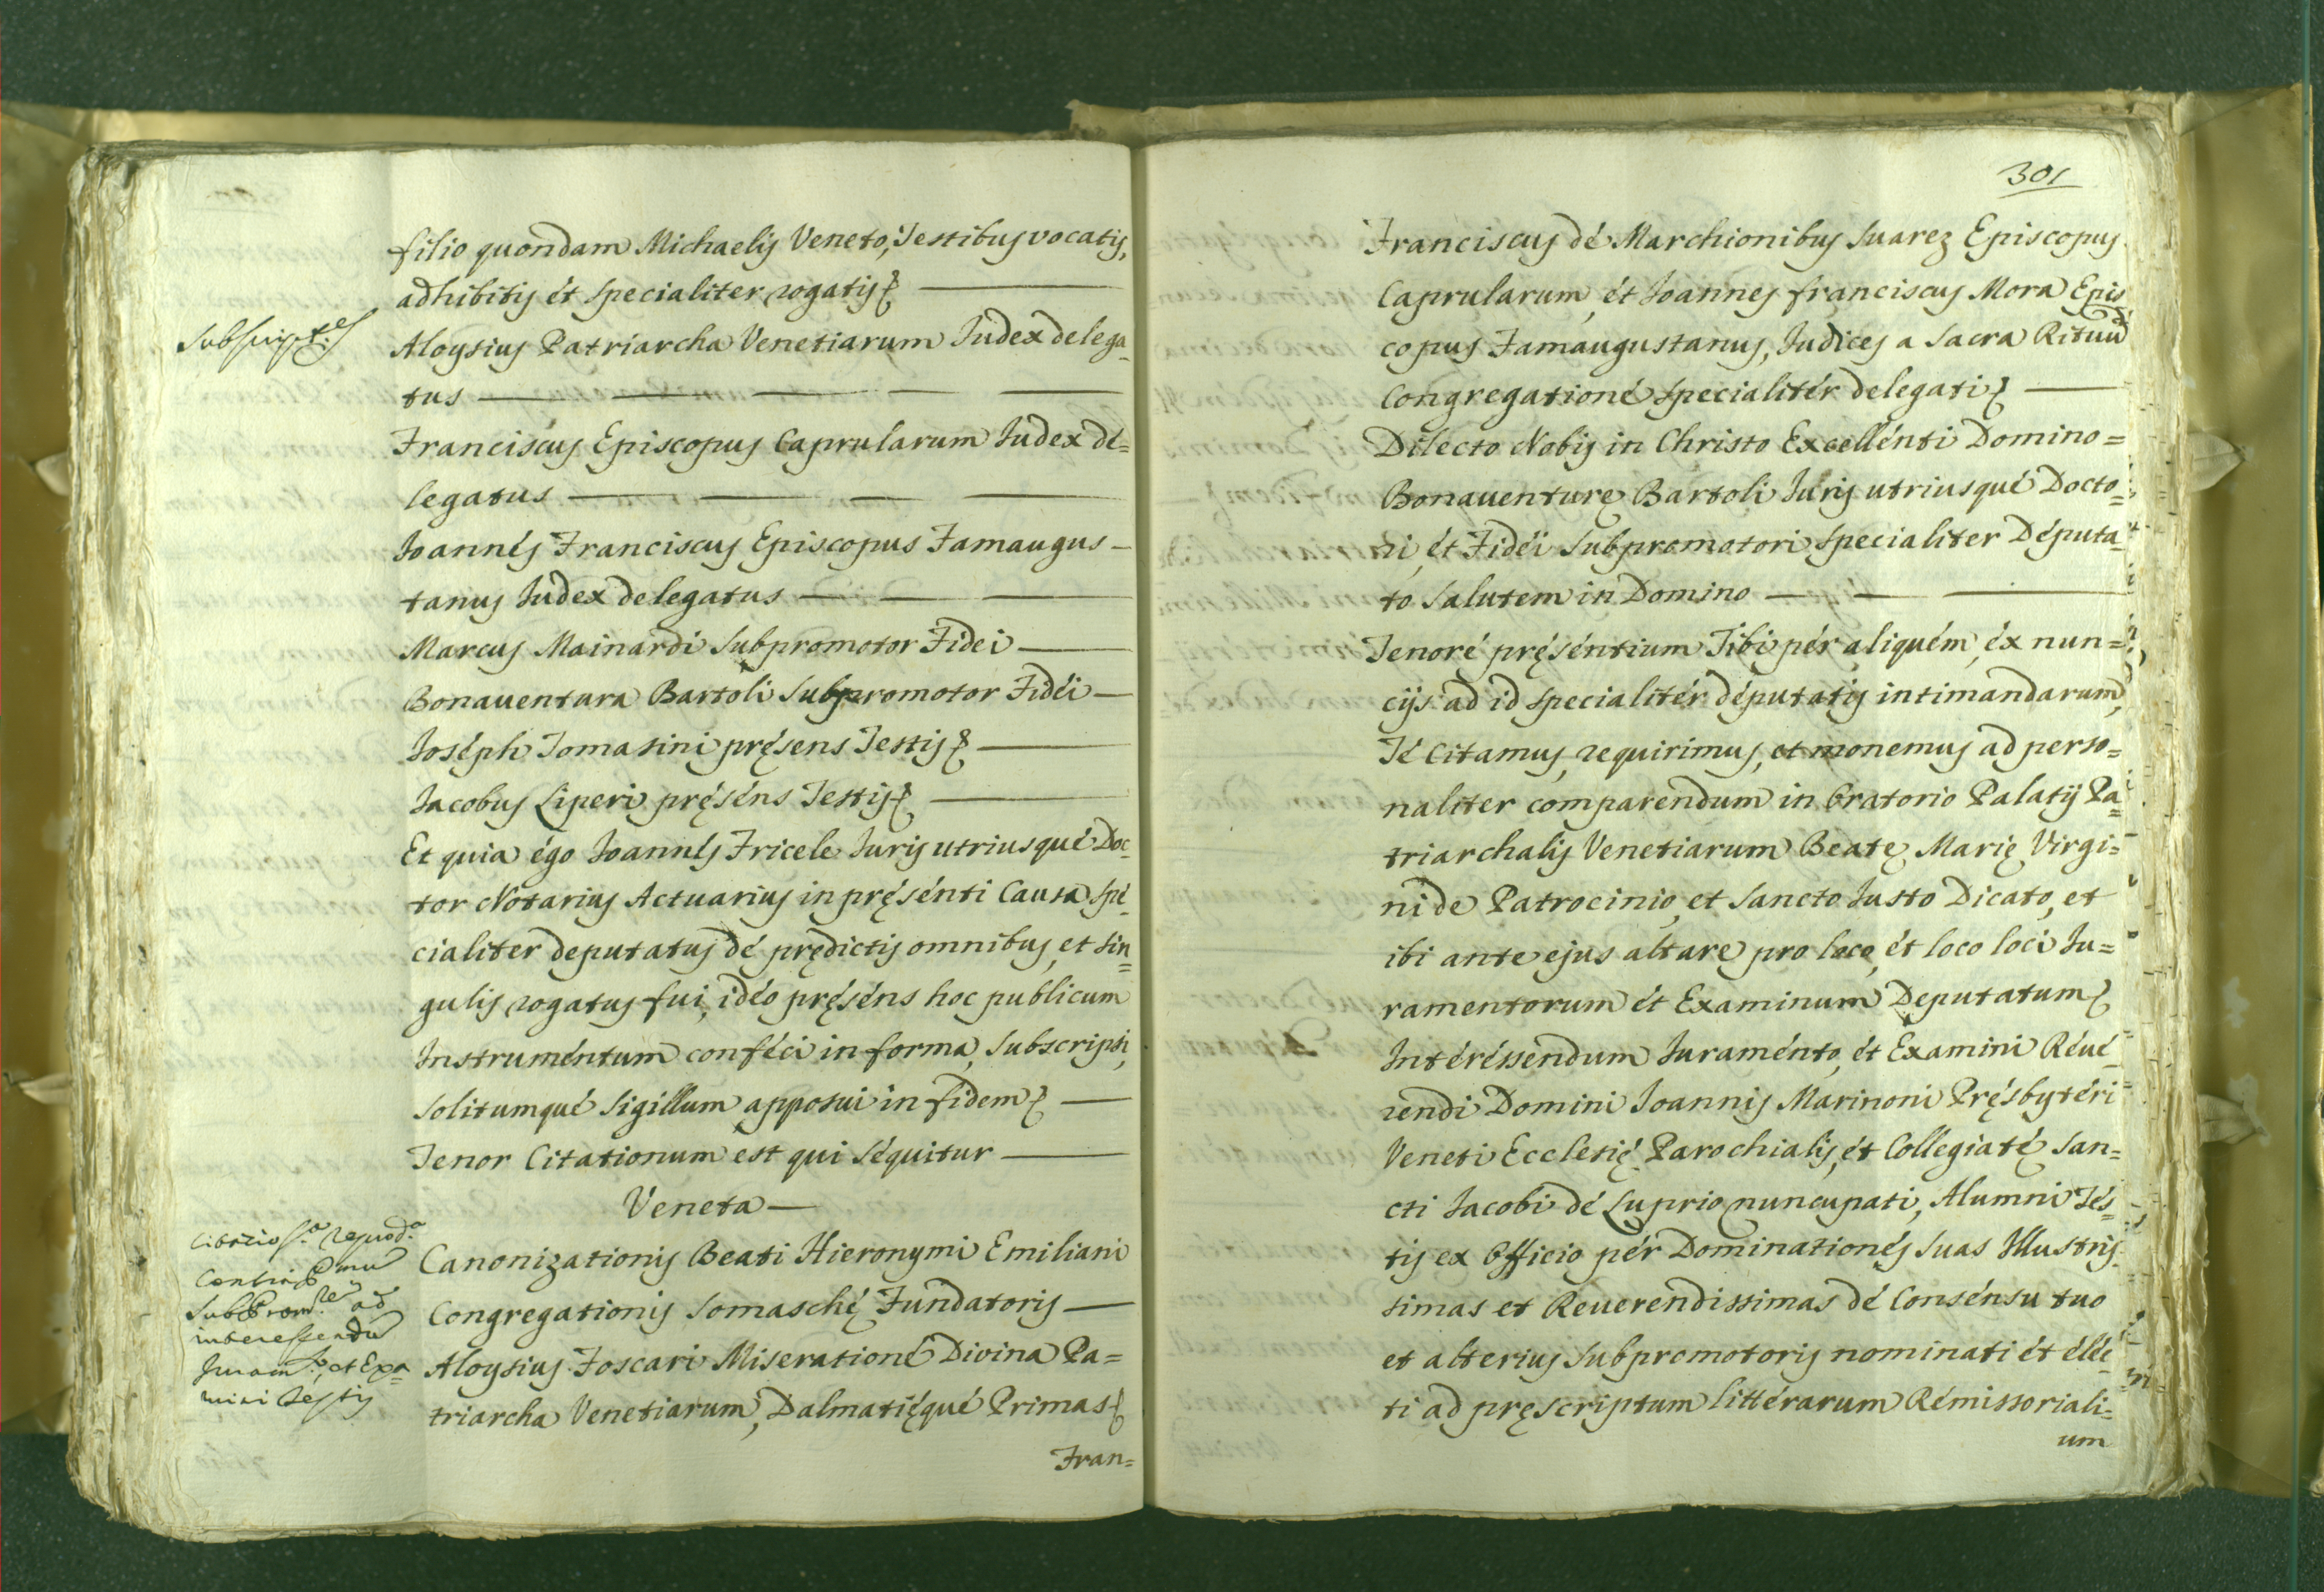 filio quondam Michaelis Veneto, Testibus vocatis,
adhibitis et specialiter rogatis
subscript:es
Aloysius Patriarcha Venetiarum Iudex delega-
tus
Franciscus Episcopus Caprularum Iudex de=
legatus
Ioannes Franciscus Episcopus Famaugus-
tanus Iudex delegatus
Marcus Mainardi Subpromotor Fidei
Bonauentura Bartoli Subpromotor Fidéi
Ioséph Tomasini pręsens Testis
Iacobus Liperi pręséns Testis
Et quia égo Ioannes Fricele Iuris utriusqué Doc-
tor Notarius Actuarius in pręsénti Causa spe-
cialiter deputatus dé prędictis omnibus, et sin=
gulis rogatus fui, idéo pręséns hoc publicum
Instruméntum conféci in forma, subscripsi,
solitumqué Sigillum apposui in fidem
Tenor Citationum est qui séquitur
Veneta
Canonizationis Beati Hieronymi Emiliani
Congregationis Somaschę Fundatoris
Aloysius Foscari Miserationé Divina Pa=
triarcha Venetiarum, Dalmatięqué Primas
Fran=
Subprom.re ad
interessendu
Juram.to, et Exa=
mini Testis
301
Franciscus dé Marchionibus Suarez Episcopus
Caprularum, ét Ioannes franciscus Mora Epis
copus Famaugustanus, Iudices a Sacra Rituu
Congregationé specialitér delegati
Dilecto Nobis in Christo Excellénti Domino=
Bonauenturę Bartoli Iuris utriusqué Docto=
ri, ét Fidéi Subpromotori specialiter Députa-
to Salutem in Domino
Tenoré pręséntium Tibi pér aliquém, éx nun=
cijs ad id specialitér députatis intimandarum,
Té Citamus, requirimus, et monemus ad perso=
naliter comparendum in Oratorio Palatij Pa=
triarchalis Venetiarum Beatę Marię Virgi=
ni de Patrocinio, et Sancto Iusto Dicato, et
ibi ante ejus altare pro loco, ét loco loci Iu=
ramentorum ét Examinum Deputatum
Intéréssendum Iuraménto, ét Examini Réué-
rendi Domini Ioannis Marinoni Pręsbytéri
Veneti Ecclesię Parochialis, ét Collégiatę San=
cti Iacobi dé Luprio nuncupati, Alumni Tés-
tis ex Officio pér Dominationés suas Illustris-
simas et Reuerendissimas dé Consénsu tuo
et alterius Subpromotoris nominati ét éléc-
ti ad pręscriptum littérarum Rémissoriali=
um